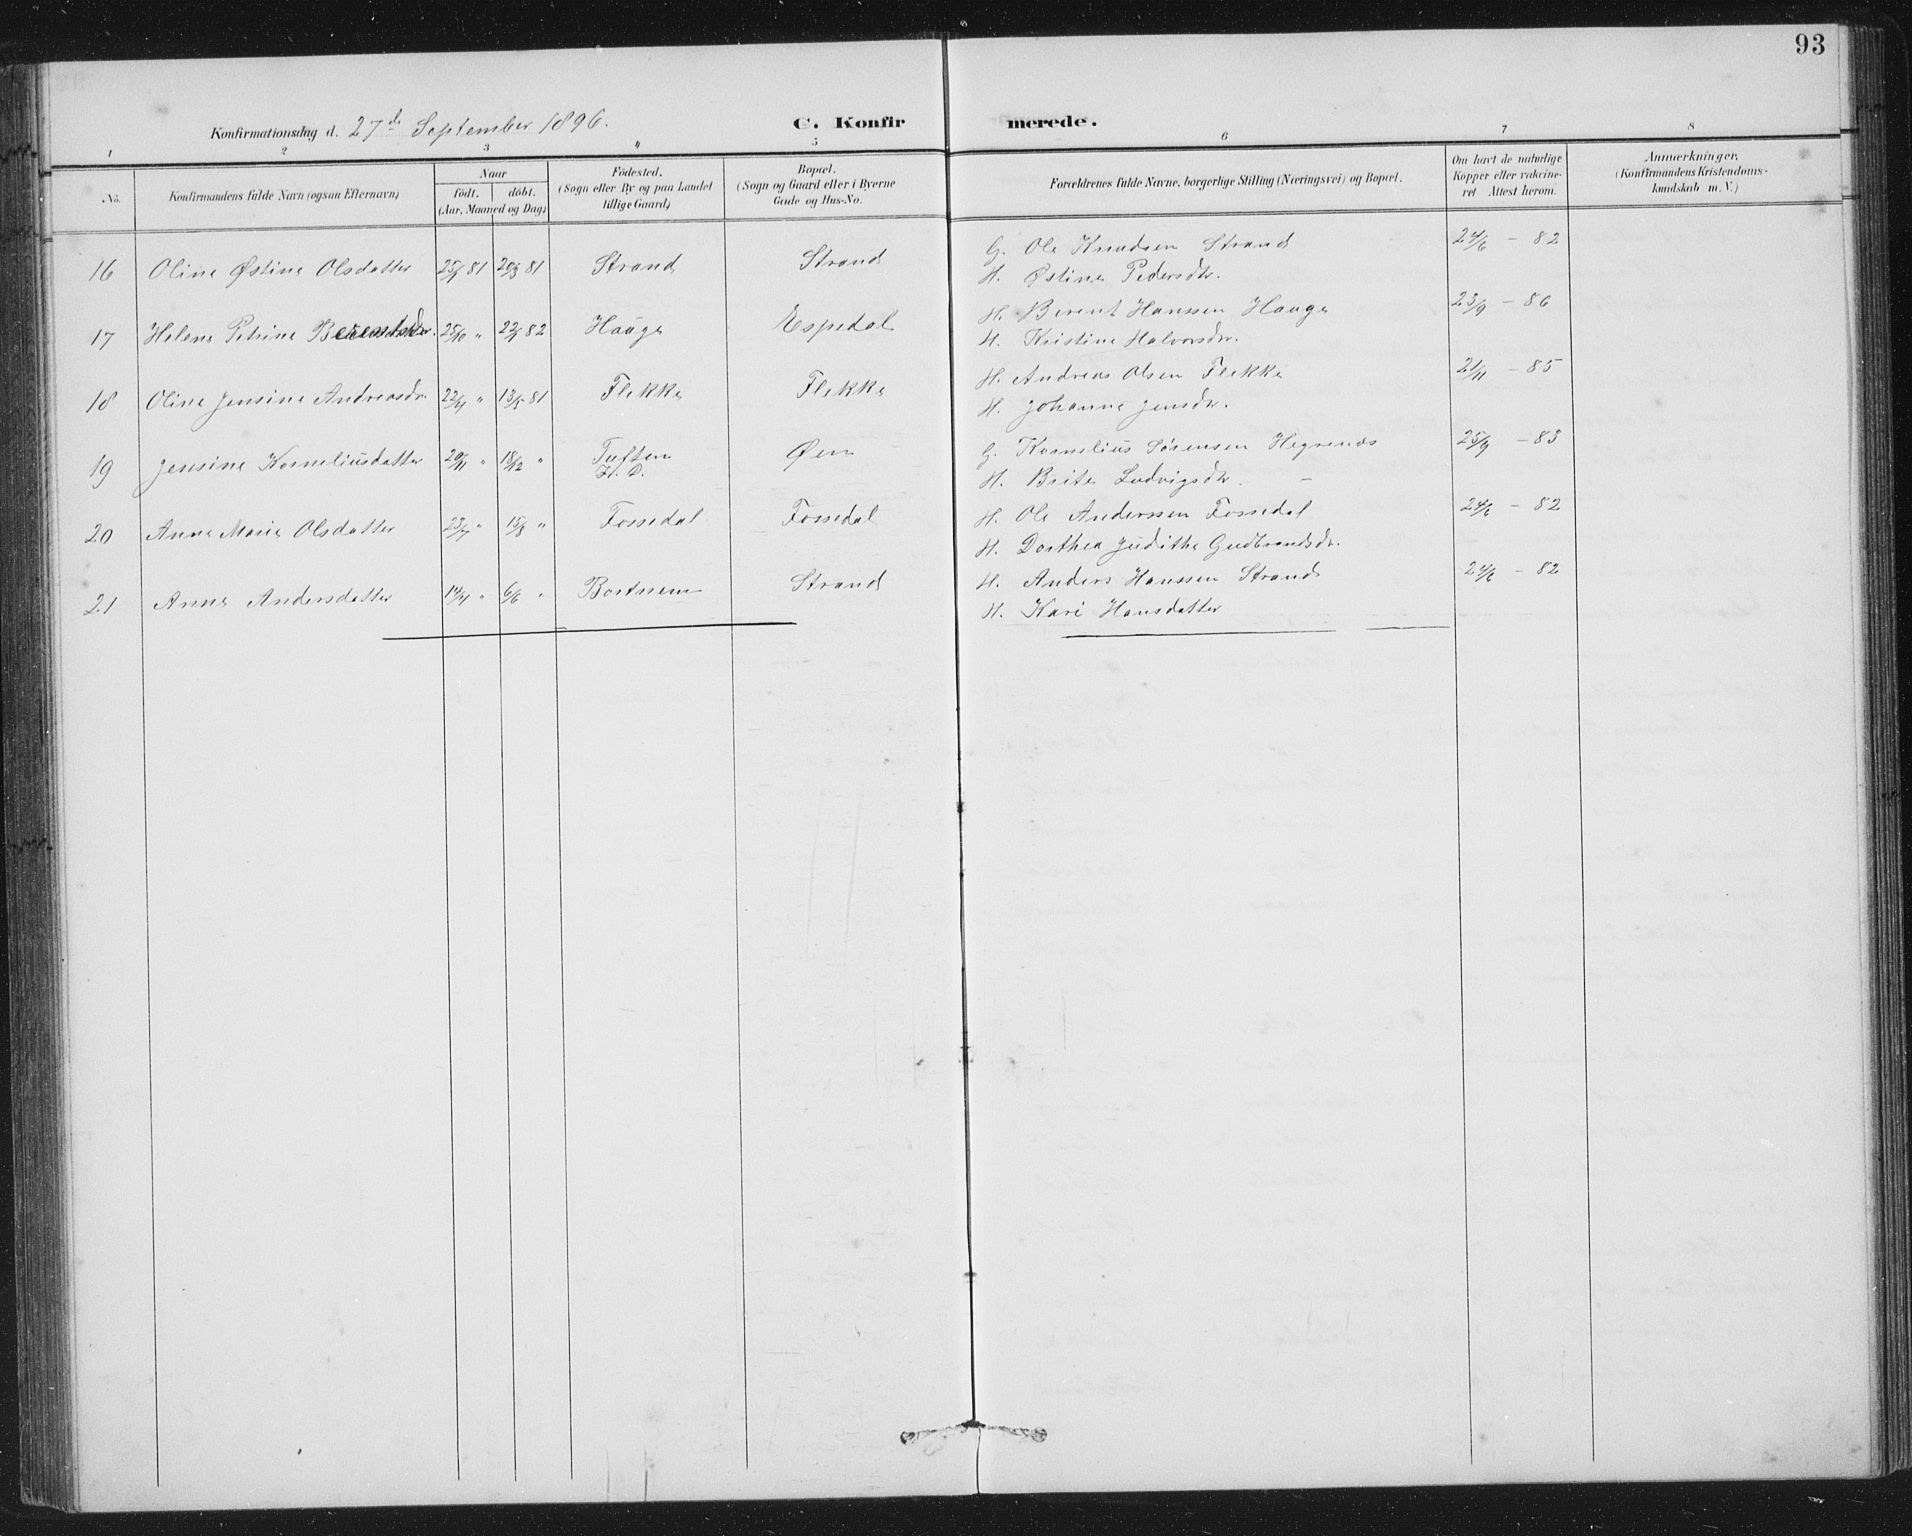 93
Konfirmationsdag d. 27de September 1896. C. Konfirmerede.
1 2 3 4 5 6 7 8
No. Konfirmandens fulde Navn (ogsaa Efternavn) Naar født. døbt. (Aar, Maaned og Dag) Fødested. (Sogn eller By og paa Landet tillige Gaard) Bopæl. (Sogn og Gaard eller i Byerne Gade og Hus-No. Forældrenes fulde Navne, borgerlige Stilling (Næringsvei) og Bopæl. Om havt de naturlige Kopper eller vakcineret Attest herom. Anmerkninger. (Konfirmandens Kristendomskundskab m. V.)
16 Oline Østine Olsdatter 81 81 Strand Strand G. Ole Knudsen Strand 24/6 - 82
H. Østine Pedersdtr.
17 Helene Petrine Berentsdtr. 25/10 " 82 Hauge Espedal H. Berent Hanssen Hauge 23/9 - 86
H. Kristine Halvorsdtr.
18 Oline Jensine Andreasdr. 22/4 " 13/5 81 Flekke Flekke H. Andreas Olsen Flekke 21/11 - 85
H. Johanne Jensdtr.
19 Jensine Korneliusdatter 20/11 " 18/12 " Tuften H. D. Øen G. Kornelius Sørensen Hegrenæs 25/9 - 83
H. Brite Ludvigsdtr.
20 Anne Marie Olsdatter 23/7 " 15/8 " Fossedal Fossedal H. Ole Anderssen Fossedal 24/6 - 82
H. Dorthea Judithe Gudbrandsdr.
21 Anne Andersdatter 14/4 " 6/6 " Bortnem Strand H. Anders Hanssen Strand 24/6 - 82
H. Kari Hansdatter